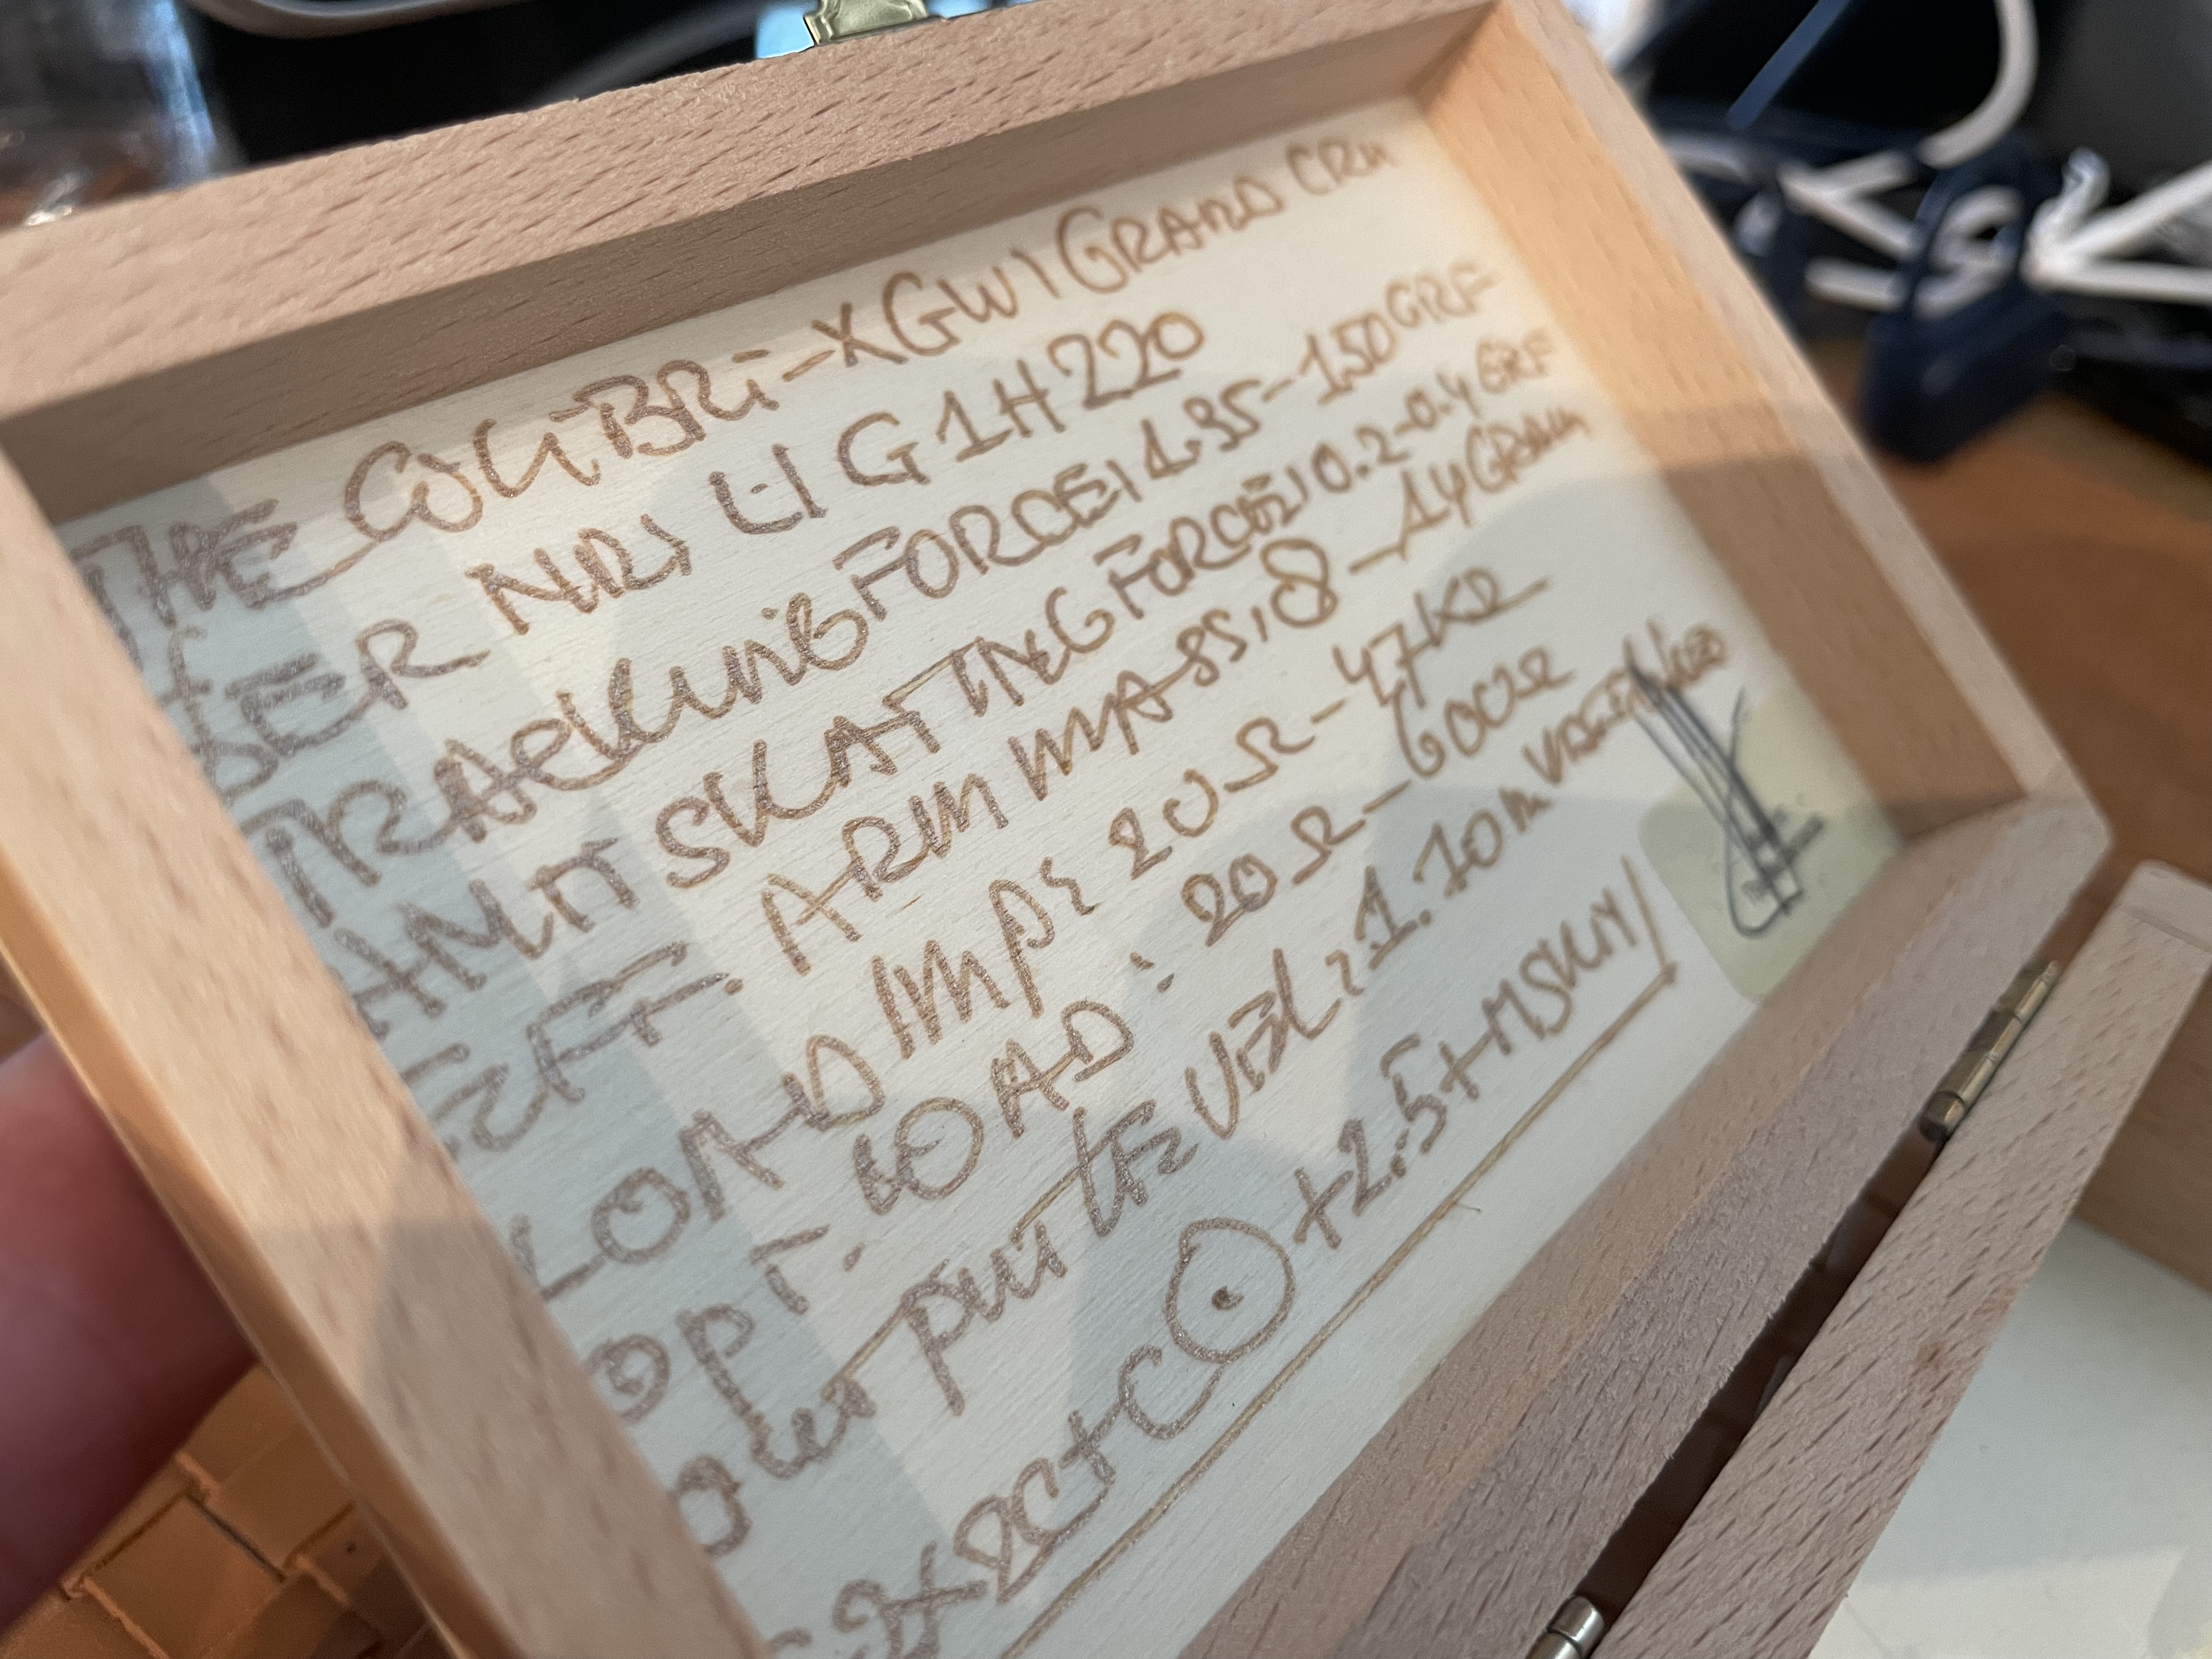 THE COLiBRi-XGW | GRAND CRu
SER NRS LI G1H220
TRACKING FORCE: 1.35-1.50 GRF
ANTI SKATING FORCE: 0.2-0.4 GRF
EFF. ARM MASS: 8-14 GRAM
LOAD IMP: 20Ω-47KΩ
OPT. LOAD: 20Ω-600Ω
OUTPUT LEVEL: 1.10 m
+2.5+MSKM/